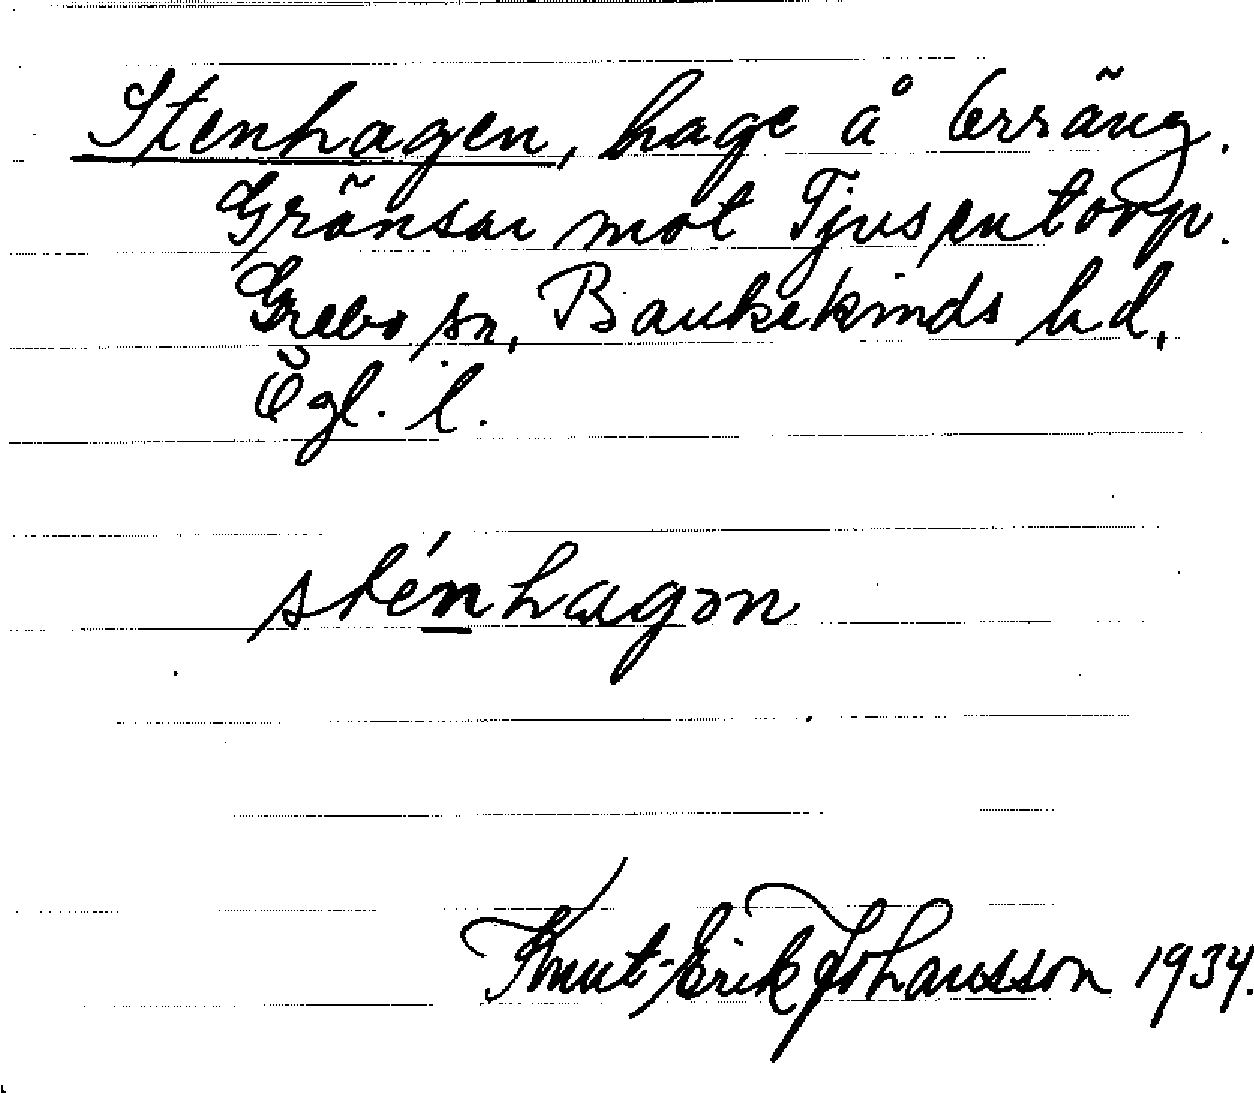 Stenhagen, hage å Örräng.
Gränsar mot Tjusentorp.
Grebo sn, Bankekinds hd,
Ögl. l.
sténhagən
Knut-Erik Johansson 1934.